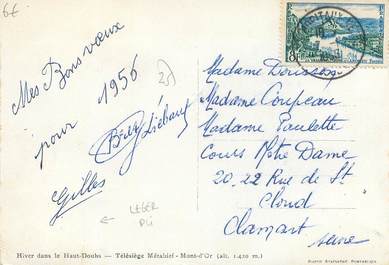 6€
25
Mes Bons vœux
pour 1956
Gilles
LEGER
PLI
Madame
Madame Coupeau
Madame Paulette
Cours Notre Dame
20-22 Rue de St
Cloud
Clamart
Seine
8F
Hiver dans le Haut-Doubs — Télésiège Métabief - Mont-d'Or (alt. 1.420 m.)